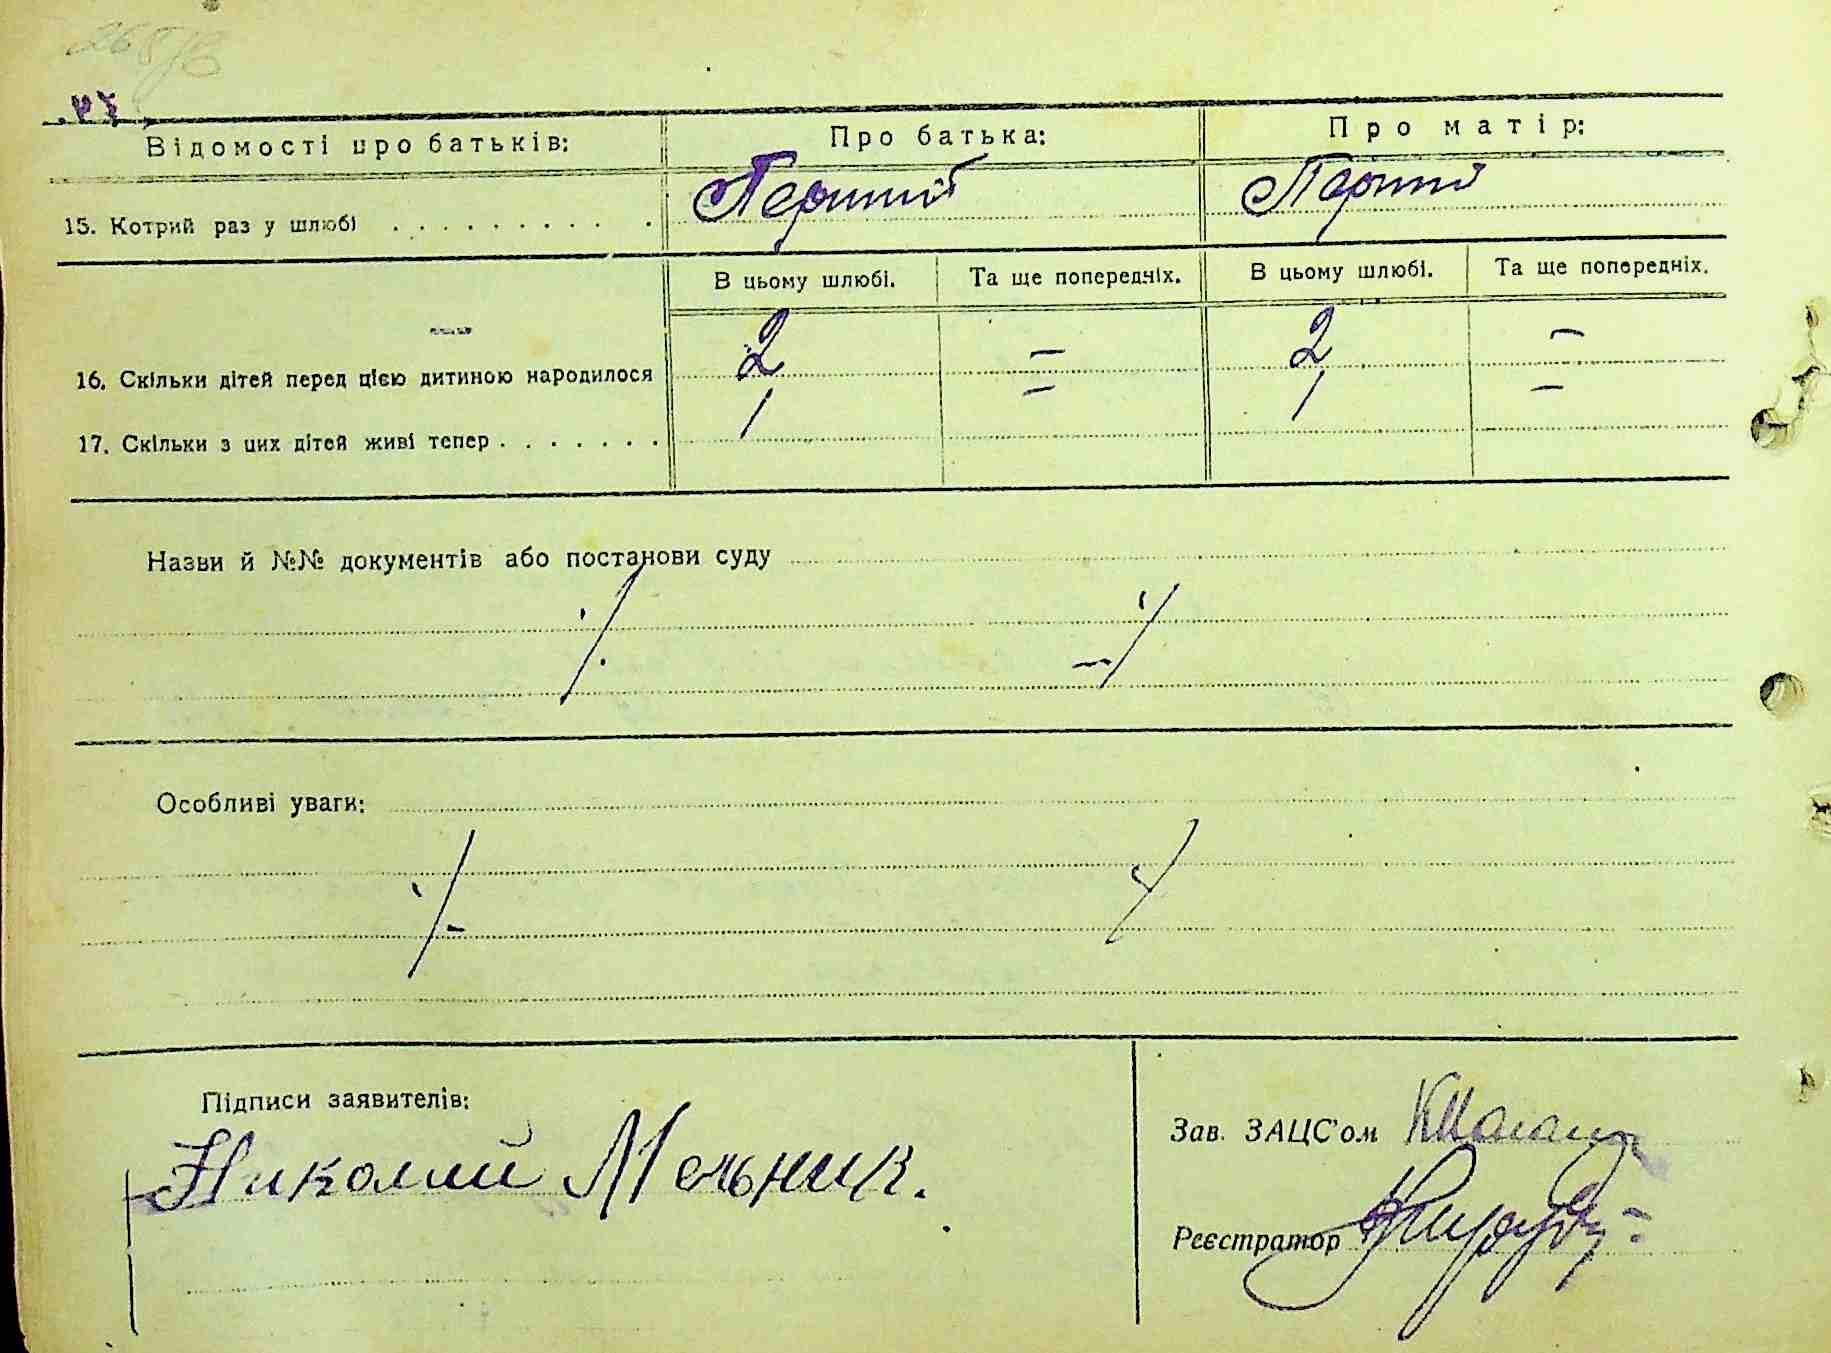 Відомості про батьків: Про батька: Про матір:
15. Котрий раз у шлюбі . . . . . . . . . . Перший Перший
В цьому шлюбі. Та ще попередніх. В цьому шлюбі. Та ще попередніх.
16. Скільки дітей перед цією дитиною народилося 2 — 2 —
17. Скільки з цих дітей живі тепер . . . . . . . 1 — 1 —
Назви й №№ документів або постанови суду
Особливі уваги:
Підписи заявителів:
Николай Мельник.
Зав. ЗАЦС'ом
Реєстратор